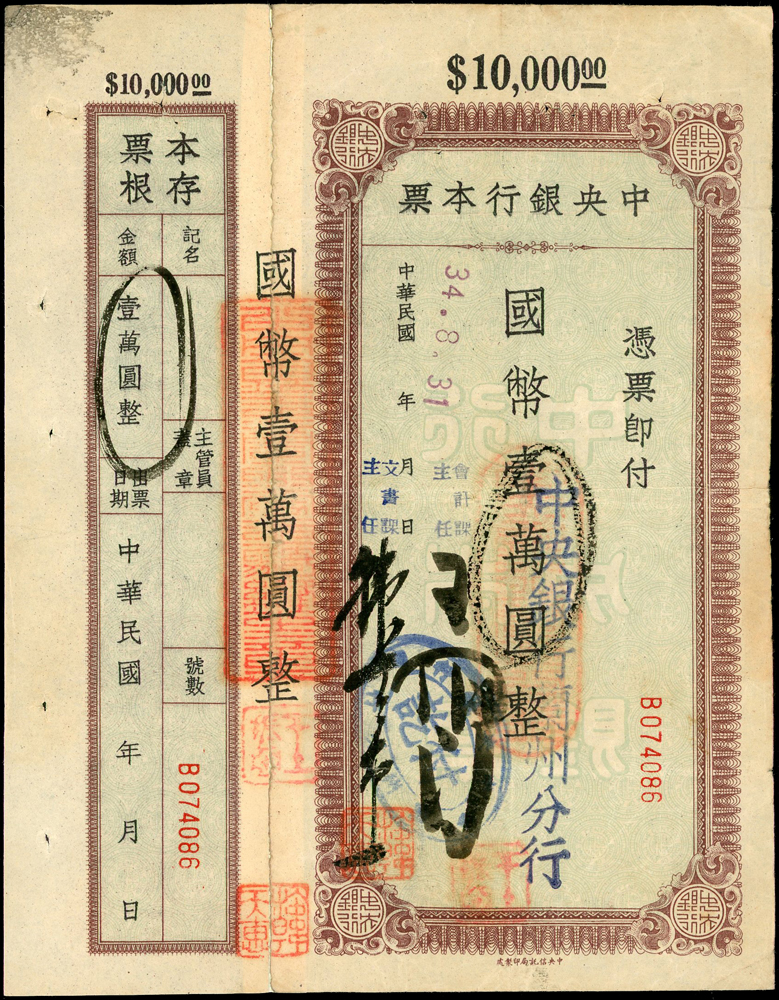 $10,000.00
$10,000.00
中央銀行本票
憑票即付
國幣壹萬圓整
B074086
中華民國 年 月 日
34.8.31
會計課
主任
文書課
主任
中央銀行蘭州分行
中央信託局印製處
國幣壹萬圓整
本票
存根
記名
金額
壹萬圓整
主管員
蓋章
出票
日期
中華民國 年 月 日
號數
B074086